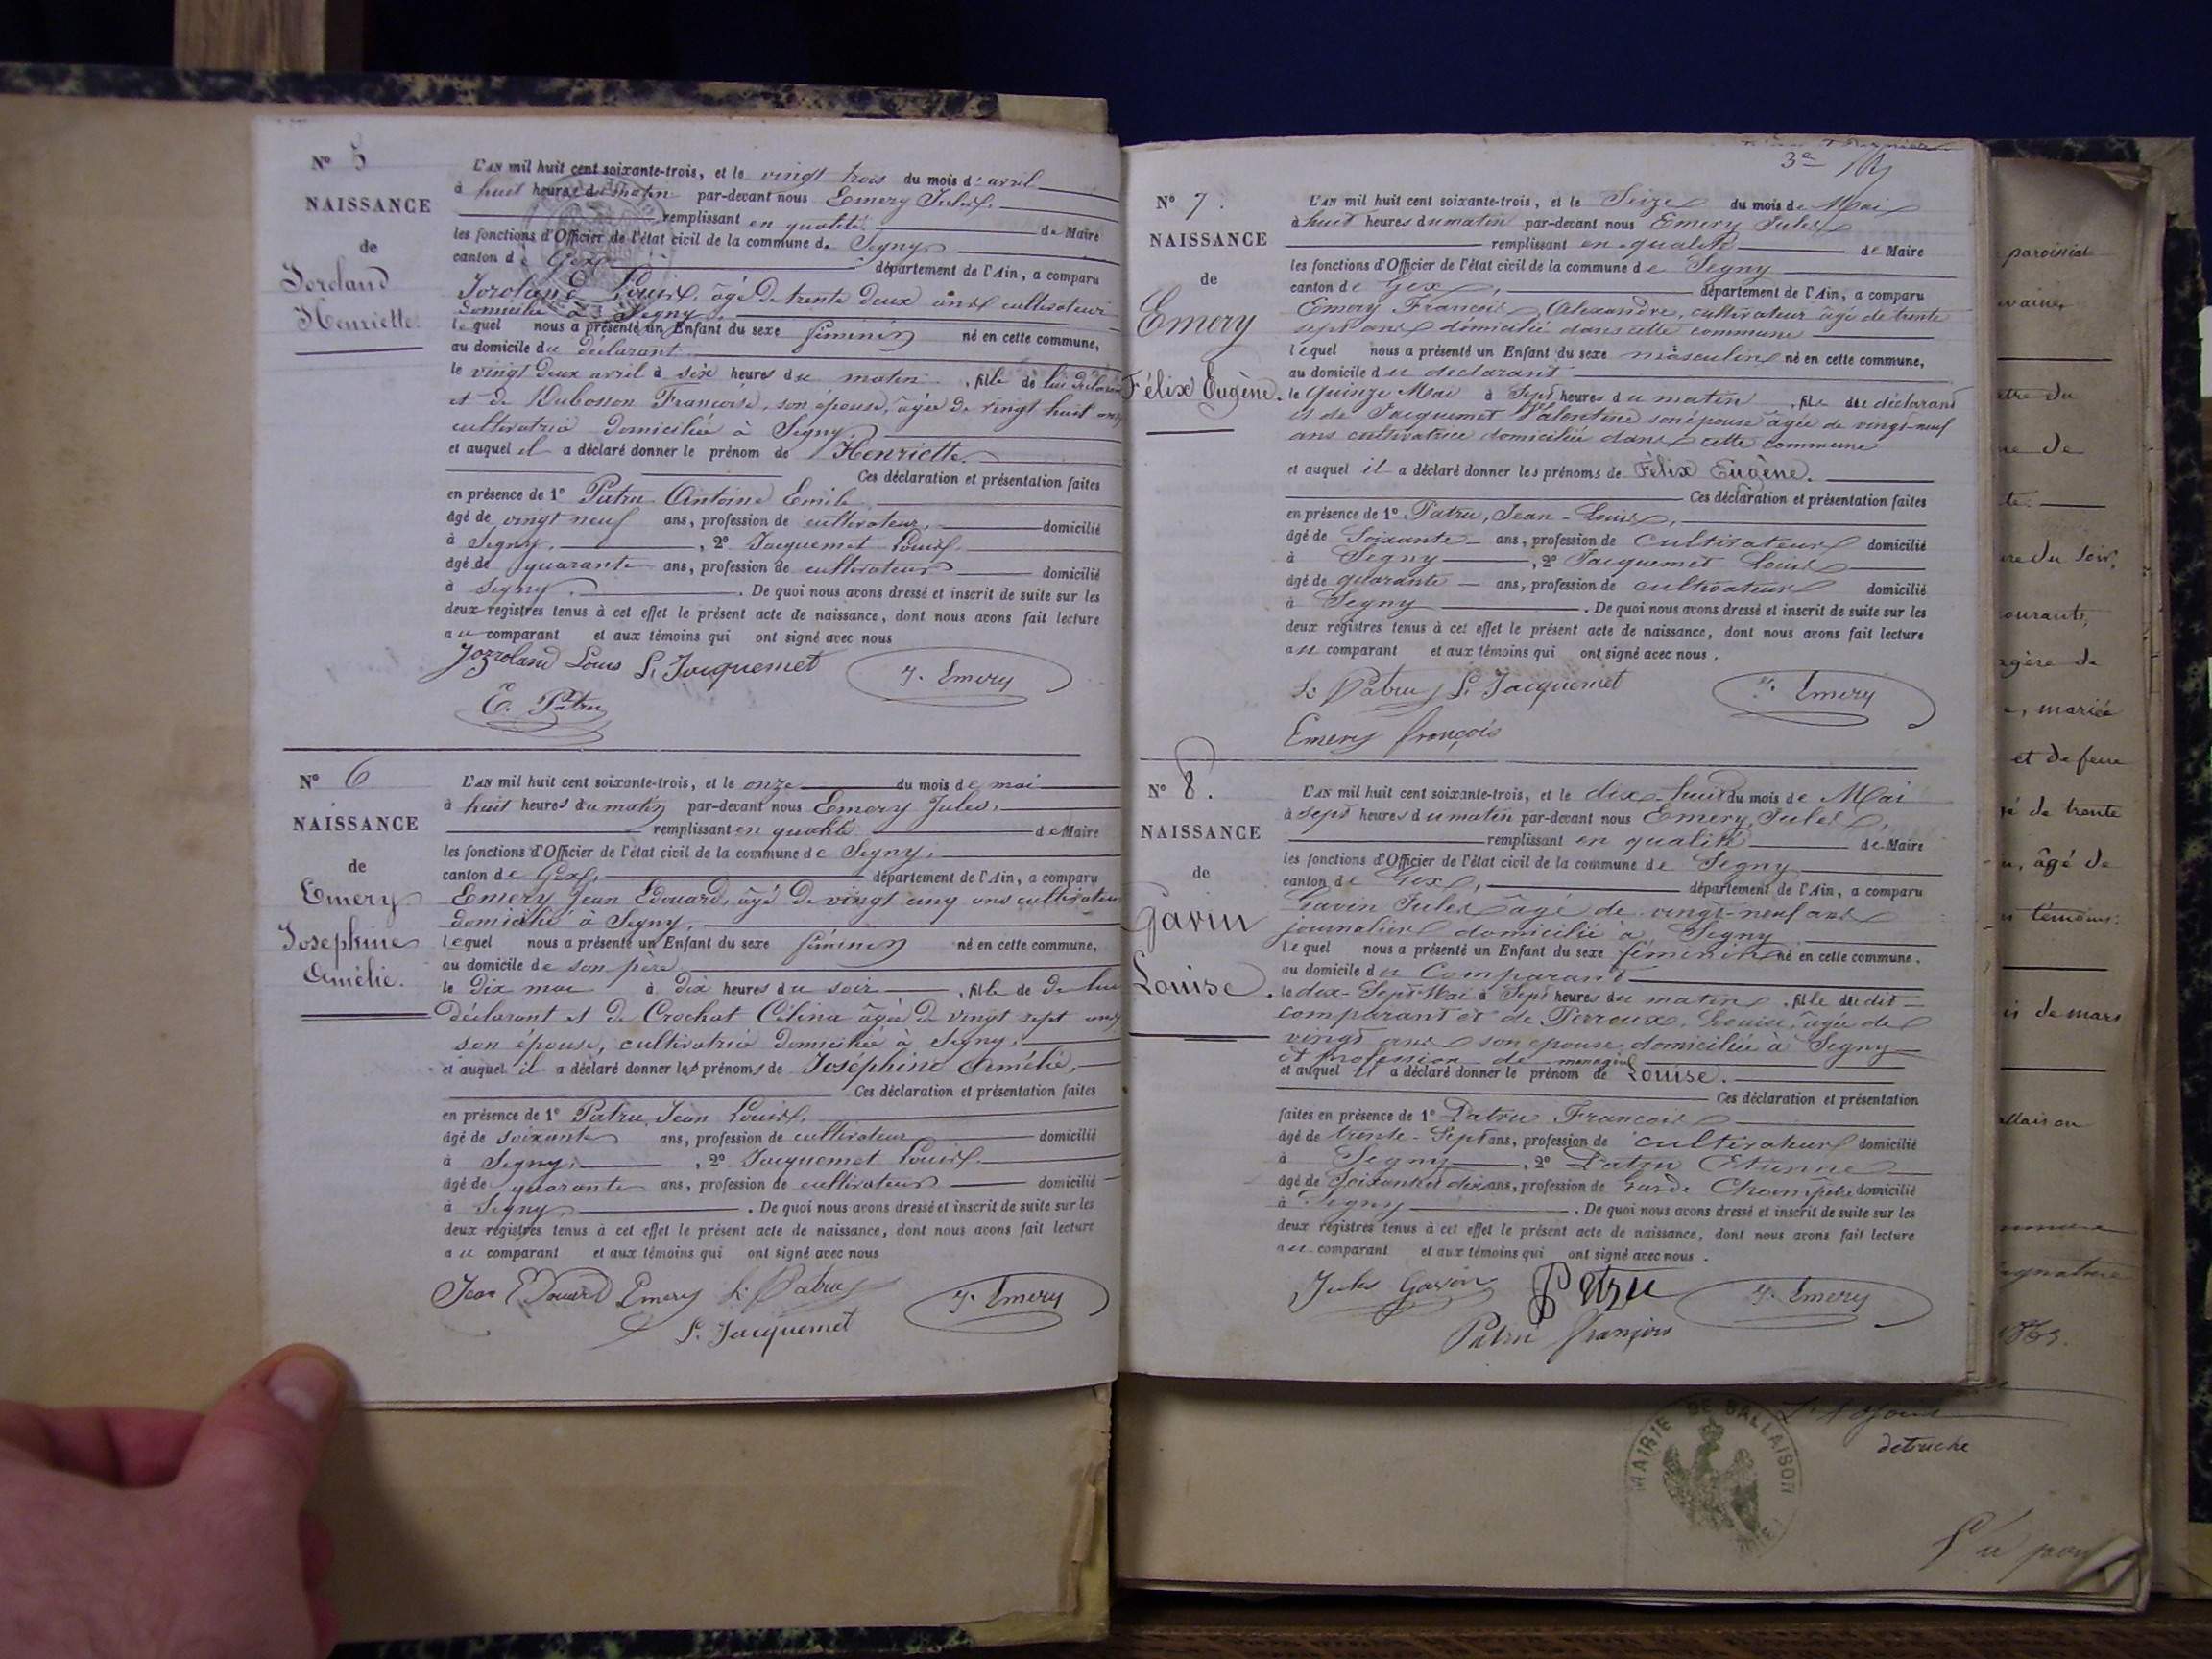 N° 5
NAISSANCE
de
Jorcland
Henriette.
L'AN mil huit cent soixante-trois, et le vingt trois du mois d'avril
à huit heures du matin par-devant nous Emery Jules,
remplissant en qualité de Maire
les fonctions d'Officier de l'état civil de la commune de Segny
canton de Gex département de l'Ain, a comparu
Louis, âgé de trente deux ans cultivateur
domicilié à Segny,
lequel nous a présenté un Enfant du sexe féminin né en cette commune,
au domicile du déclarant
le vingt deux avril à six heures du matin, fille de lui déclarant
et de Dubosson Françoise, son épouse, âgée de vingt huit ans,
cultivatrice domiciliée à Segny
et auquel il a déclaré donner le prénom de Henriette.
Ces déclaration et présentation faites
en présence de 1° Patru Antoine Emile
âgé de vingt neuf ans, profession de cultivateur, domicilié
à Segny, , 2° Jacquemet Louis,
âgé de quarante ans, profession de cultivateur domicilié
à Segny. . De quoi nous avons dressé et inscrit de suite sur les
deux registres tenus à cet effet le présent acte de naissance, dont nous avons fait lecture
au comparant et aux témoins qui ont signé avec nous
Louis L. Jacquemet J. Emery
E. Patru
N° 6
NAISSANCE
de
Emery
Josephine
Amélie.
L'AN mil huit cent soixante-trois, et le onze du mois de mai
à huit heures du matin par-devant nous Emery Jules,
remplissant en qualité de Maire
les fonctions d'Officier de l'état civil de la commune de Segny,
canton de Gex, département de l'Ain, a comparu
Emery Jean Edouard, âgé de vingt cinq ans cultivateur
domicilié à Segny,
lequel nous a présenté un Enfant du sexe féminin né en cette commune,
au domicile de son père
le dix mai à dix heures du soir, fille de de lui
déclarant et de Crochat Célina âgée de vingt sept ans,
son épouse, cultivatrice domiciliée à Segny,
et auquel il a déclaré donner les prénoms de Joséphine Amélie,
Ces déclaration et présentation faites
en présence de 1° Patru Jean Louis,
âgé de soixante ans, profession de cultivateur domicilié
à Segny, , 2° Jacquemet Louis,
âgé de quarante ans, profession de cultivateur domicilié
à Segny, . De quoi nous avons dressé et inscrit de suite sur les
deux registres tenus à cet effet le présent acte de naissance, dont nous avons fait lecture
au comparant et aux témoins qui ont signé avec nous
Jean Edouard Emery L. Patru J. Emery
L. Jacquemet
3e
N° 7.
NAISSANCE
de
Emery
Félix Eugène.
L'AN mil huit cent soixante-trois, et le Seize du mois de Mai
à huit heures du matin par-devant nous Emery Jules
remplissant en qualité de Maire
les fonctions d'Officier de l'état civil de la commune de Segny
canton de Gex, département de l'Ain, a comparu
Emery François Alexandre, cultivateur âgé de trente
sept ans domicilié dans cette commune
lequel nous a présenté un Enfant du sexe masculin né en cette commune,
au domicile du déclarant
le Quinze Mai à Sept heures du matin, fils du déclarant
et de Jacquemet Valentine son épouse âgée de vingt-neuf
ans cultivatrice domiciliée dans cette commune
et auquel il a déclaré donner les prénoms de Félix Eugène.
Ces déclaration et présentation faites
en présence de 1° Patru, Jean-Louis,
âgé de Soixante ans, profession de Cultivateur domicilié
à Segny, 2° Jacquemet Louis
âgé de quarante ans, profession de cultivateur domicilié
à Segny . De quoi nous avons dressé et inscrit de suite sur les
deux registres tenus à cet effet le présent acte de naissance, dont nous avons fait lecture
au comparant et aux témoins qui ont signé avec nous.
L. Patru L. Jacquemet J. Emery
Emery françois
N° 8.
NAISSANCE
de
Gavin
Louise.
L'AN mil huit cent soixante-trois, et le dix-huit du mois de Mai
à sept heures du matin par-devant nous Emery Jules,
remplissant en qualité de Maire
les fonctions d'Officier de l'état civil de la commune de Segny
canton de Gex, département de l'Ain, a comparu
Gavin Jules âgé de vingt-neuf ans
journalier domicilié à Segny
lequel nous a présenté un Enfant du sexe féminin né en cette commune,
au domicile du Comparant
le dix-Sept Mai à Sept heures du matin, fille du dit
comparant et de Perroux, Louise, âgée de
vingt ans son épouse domiciliée à Segny
et profession de menagère
et auquel il a déclaré donner le prénom de Louise.
Ces déclaration et présentation
faites en présence de 1° Patru François
âgé de trente-Sept ans, profession de cultivateur domicilié
à Segny, 2° Patru Etienne
âgé de Soixante dix ans, profession de Garde Champêtre domicilié
à Segny . De quoi nous avons dressé et inscrit de suite sur les
deux registres tenus à cet effet le présent acte de naissance, dont nous avons fait lecture
au comparant et aux témoins qui ont signé avec nous.
Jules Gavin Patru J. Emery
Patru François
mariée
et de feue
de trente
âgé de
témoins:
de mars
MAIRIE DE BALLAISON